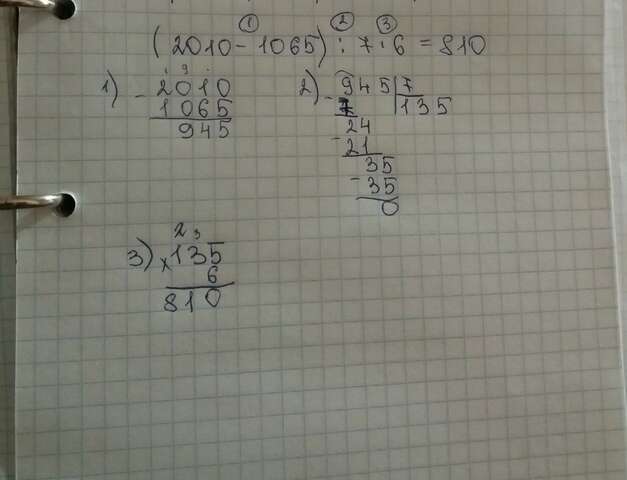 ① ② ③
(2010 - 1065) : 7 · 6 = 810
1) - 2010
1065
945
2) - 945 | 7
7 | 135
24
- 21
35
- 35
0
2 3
3) x 135
6
810